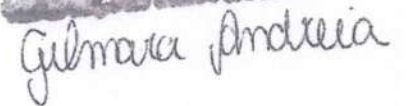 Gilmara Andreia